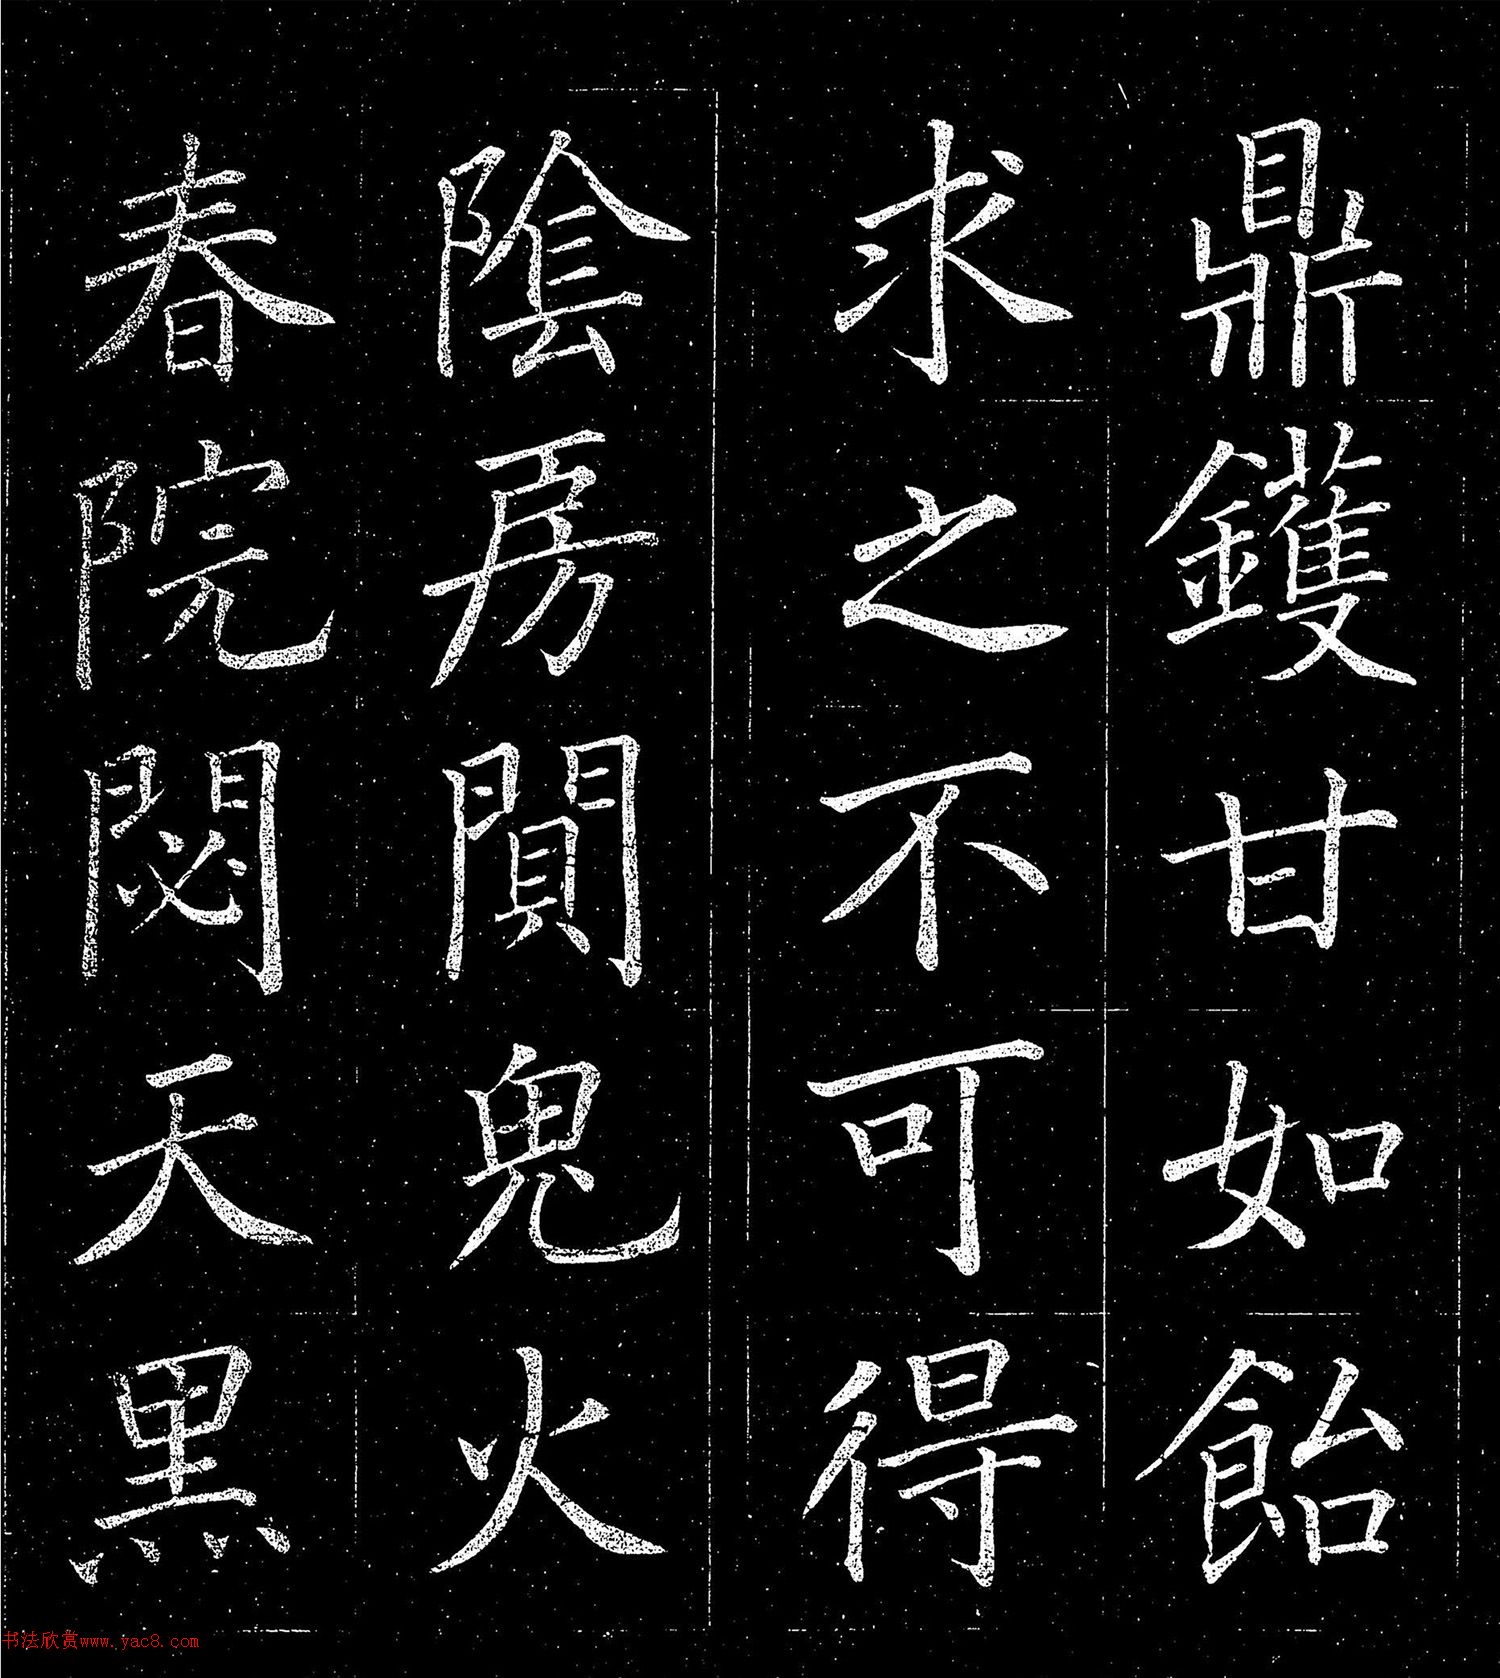 鼎鑊甘如飴
求之不可得
陰房闃鬼火
春院閟天黑
书法欣赏www.yac8.com